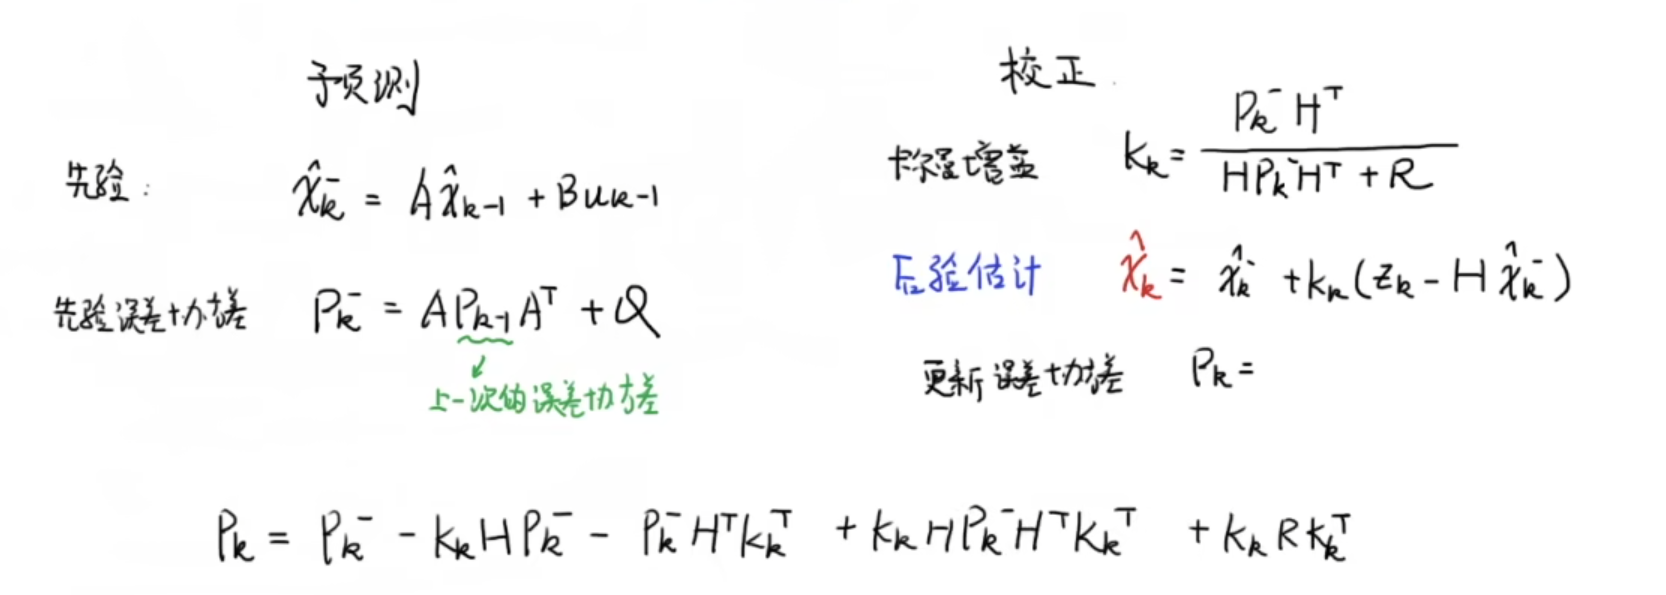 预测
先验:
x̂ₖ⁻ = Ax̂ₖ₋₁ + Buₖ₋₁
先验误差协方差 Pₖ⁻ = APₖ₋₁Aᵀ + Q
上一次的误差协方差
校正
卡尔曼增益 Kₖ = Pₖ⁻Hᵀ / (HPₖ⁻Hᵀ + R)
后验估计 x̂ₖ = x̂ₖ⁻ + Kₖ(zₖ - Hx̂ₖ⁻)
更新误差协方差 Pₖ =
Pₖ = Pₖ⁻ - KₖHPₖ⁻ - Pₖ⁻HᵀKₖᵀ + KₖHPₖ⁻HᵀKₖᵀ + KₖRKₖᵀ